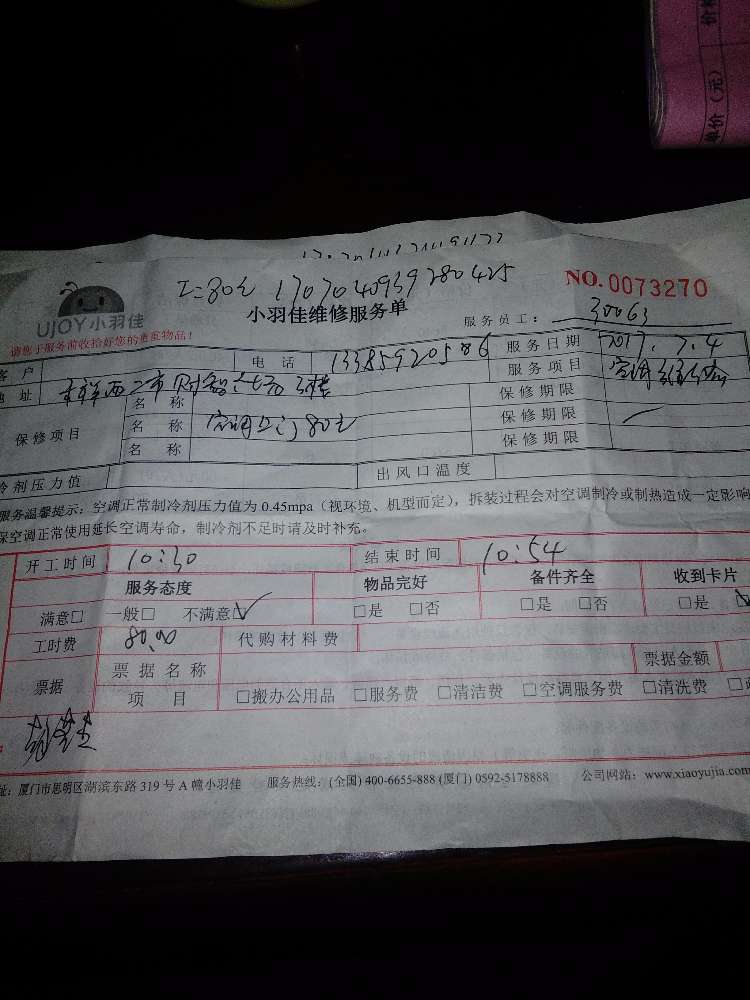 价格
单价（元）
工=80元 1707040939280425
NO.0073270
UJOY小羽佳
小羽佳维修服务单
服务员工： 30063
请您于服务前收拾好您的贵重物品！
客户 电话 13385920586 服务日期 2017.7.4
地址 服务项目 空调维修
名称 保修期限
保修项目 名称 空调上门80元 保修期限
名称 保修期限
冷剂压力值 出风口温度
服务温馨提示：空调正常制冷剂压力值为 0.45mpa（视环境、机型而定），拆装过程会对空调制冷或制热造成一定影响
保空调正常使用延长空调寿命，制冷剂不足时请及时补充。
开工时间 10:30 结束时间 10:54
服务态度 物品完好 备件齐全 收到卡片
满意□ 一般□ 不满意☑ □是 □否 □是 □否 □是
工时费 80.00 代购材料费
票据 票据名称 票据金额
项目 □搬办公用品 □服务费 □清洁费 □空调服务费 □清洗费
址：厦门市思明区湖滨东路 319 号 A 幢小羽佳 服务热线：(全国) 400-6655-888 (厦门) 0592-5178888 公司网站：www.xiaoyujia.com